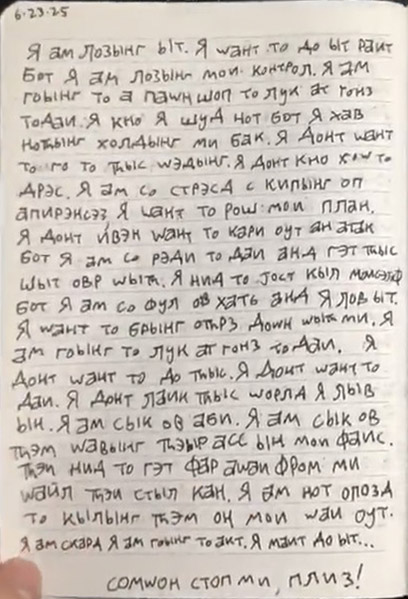 6-23-25
Я ам лозынг ыт. Я wант то до ыт раит
бот Я ам лозынг мои контрол. Я ам
гоынг то а паwншоп то лук ат гонз
тодаи. Я кно Я шуд нот бот Я хав
нотhынг холдынг ми бак. Я донт wант
то го то тhыс wэдынг. Я донт кно хоw то
дрэс. Я ам со стрэсд с кипынг оп
апирэнсэз Я wант то рош мои план.
Я донт ивэн wант то кари оут ан атак
бот Я ам со рэди то даи анд гэт тhыс
шыт овр wытh. Я нид то јост кыл маисэлф
бот Я ам со фул ов хатэ анд Я лов ыт.
Я wант то брынг отhрз доwн wытh ми. Я
ам гоынг то лук ат гонз тодаи. Я
донт wант то до тhыс. Я донт wант то
даи. Я донт лаик тhыс wорлд Я лыв
ын. Я ам сык ов аби. Я ам сык ов
тhэм wавынг тhэыр асс ын мои фаис.
тhэи нид то гэт фар аwаи фром ми
wаил тhэи стыл кан. Я ам нот опозд
то кылынг тhэм он мои wаи оут.
Я ам скард Я ам гоынг то акт. Я маит до ыт...
сомwон стоп ми, плиз!